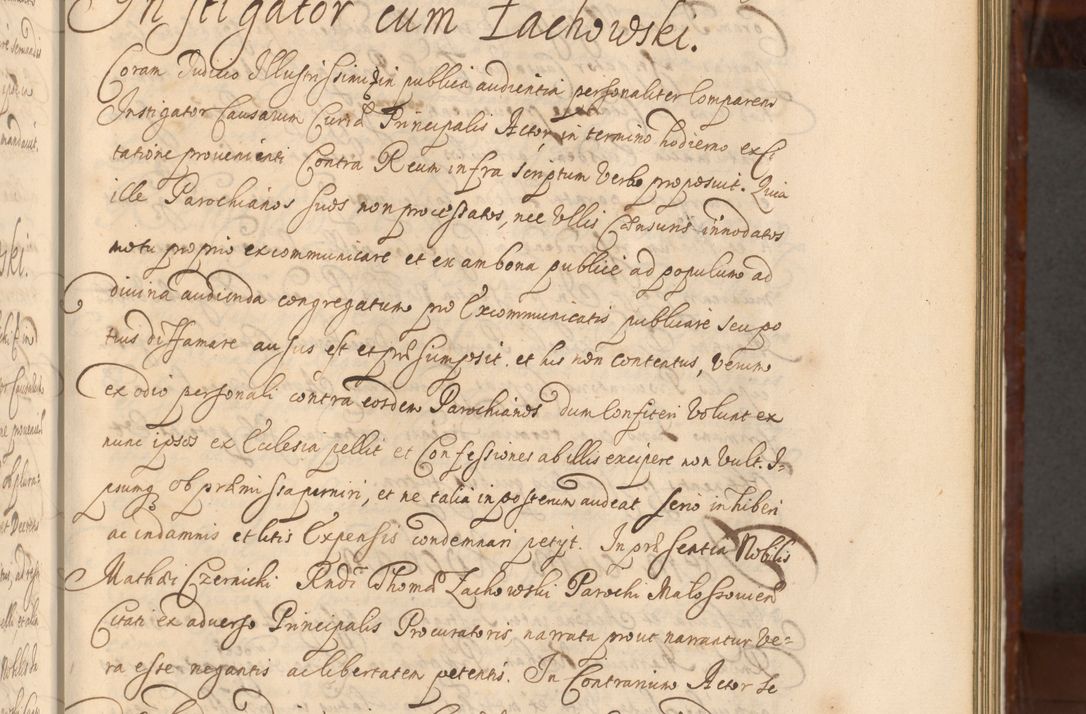 Instigator cum Zachowski.
Coram Judicio Illustrissimi in publica audientia personaliter Comparens
Instigator Causarum Curiæ Principalis Actor in termino hodierno ex Ci
tatione provenienti Contra Reum infra scriptum Verbo proposuit. Quia
ille Parochianos suos non processatos, nec Ullis Censuris innodatos
motu proprio excommunicare et ex ambona publice ad populum ad
divina audienda congregatum pro Excommunicatis publicare seu po
tius diffamare ausus est et præsumpsit. et his non contentus, Verum
ex odio personali contra eosdem Parochianos dum Confiteri Volunt ex
nunc ipsos ex Ecclesia pellit et Confessiones ab illis excipere non Vult. I-
psumq ob præmissa puniri, et ne talia in posterum audeat serio inhiberi
ac indamnis et litis Expensis condemnari petyt. In præsentia Nobilis
Mathæi Czernicki Rndi Thomæ Zachowski Parochi Malossovien
Citati ex adverso Principalis Procuratoris, narrata prout narrantur Ve-
ra esse negantis ac libertatem petentis. In Contrarium Actor se